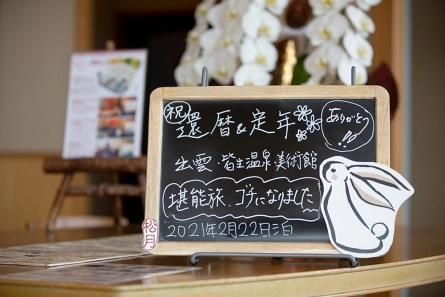 祝 還暦&定年
ありがとう!!
出雲・皆生温泉・美術館
堪能旅、ゴチになりました
2021年2月22日泊
松月